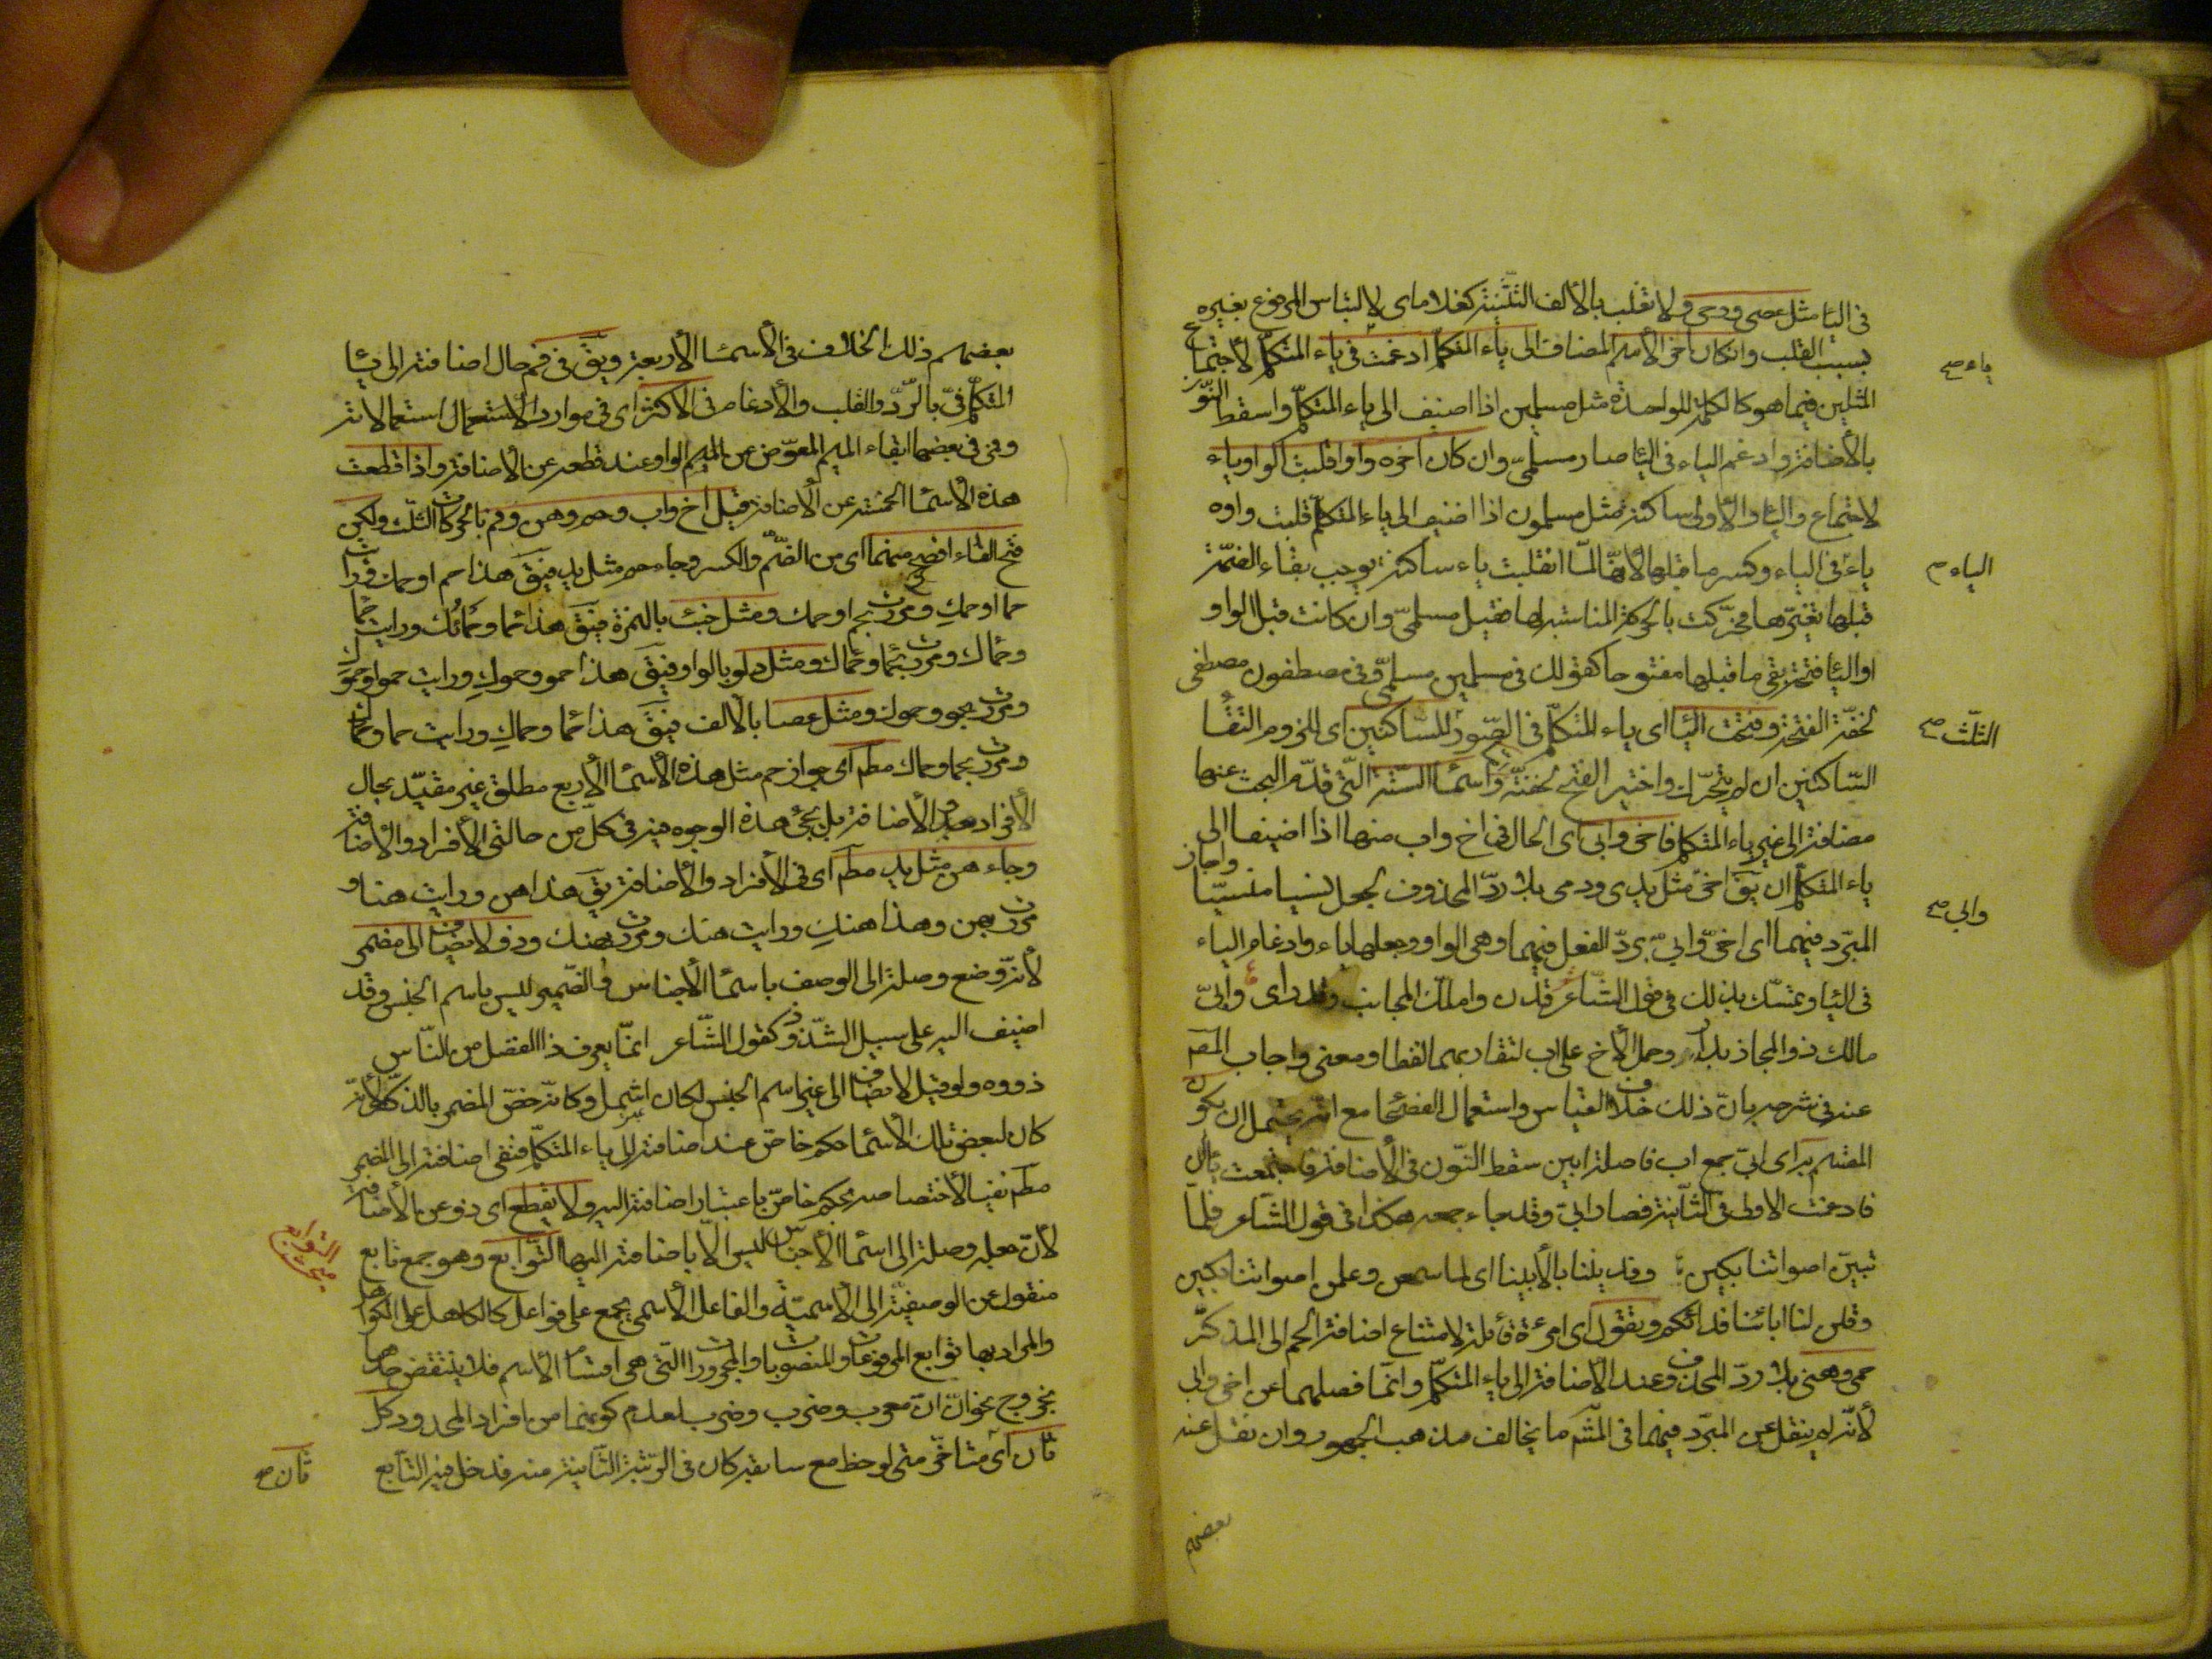 فى اليا مثل عصى ورحى ولا تقلب بالالف التثنية كغلاماى لالتباس المرفوع بغيره
بسبب القلب وان كان اخر الاسم المضاف الى ياء المتكلم ادغمت فى ياء المتكلم لاجتماع
المثلين فيما هو كالكلمة الواحدة مثل مسلمين اذا اضيف الى ياء المتكلم واسقط النون
بالاضافة وادغم الياء فى اليا صار مسلمىّ وان كان اخره واوا قلبت الواو ياء
لاجتماع واليا والاولى ساكنة مثل مسلمون اذا اضيف الى ياء المتكلم قلبت واوه
ياء فى الياء وكسر ما قبلها لانها لما انقلبت ياء ساكنة يوجب بقاء الضمة
قبلها تغيّرها فحرّكت بالحركة المناسبة لها فقيل مسلمىّ وان كانت قبل الواو
او اليا فتحة بقى ما قبلها مفتوحا كقولك فى مسلمين مسلمىّ وفى مصطفون مصطفى
لخفّة الفتحة وفتحت اليا اى ياء المتكلم فى الصور للساكنين اى للزوم التقا
الساكنين ان لم يتحرّك واختير الفتح لخفته واسما الستة التى قدّم البحث عنها
مضافة الى غير ياء المتكلم فاخى وابى اى الحال فى اخ واب منها اذا اضيفا الى
ياء المتكلم ان يقَ اخى مثل يدى ودمى بلا ردّ المحذوف لجعل نسيا منسيّا واجاز
المبرّد فيهما اى اخىّ وابىّ بردّ الفعل فيهما وهى الواو وجعلها ياء وادغام الياء
فى اليا وتمسّك بذلك فى قول الشاعر وابىّ
مالك ذو المجاز بدار وحمل الاخ على اب لتقاربهما لفظا ومعنى واجاب المصَ
عنه فى شرحه بانّ ذلك خلاف القياس واستعمال الفصحا مع انه يحتمل ان يكون
المقسم به اى ابىّ جمع اب فاصله ابين سقط النون فى الاضافة فاجتمعت يائان
فادغمت الاولى فى الثانية فصار ابىّ وقد جاء جمعه هكذا فى قول الشاعر فلما
تبيّن اصواتنا بكين وفدّيننا بالابينا اى لما سمعن وعلمن اصواتنا بكين
وقلن لنا ابائنا فدائكم وتقول اى امرءة قائلة لامتناع اضافة الحم الى المذكّر
حمى وهنى بلا ردّ المحذوف عند الاضافة الى ياء المتكلم وانما فصلهما عن اخى وابى
لانّه لم ينقل عن المبرّد فيهما فى المتَم ما يخالف مذهب الجمهور وان نقل عنه
بعضهم
ياء صح
الياء م
الثلث صح
وابى صح
بعضهم ذلك الخلاف فى الاسما الاربعة ويقَ فى فم حال اضافته الى يا
المتكلم فىّ بالردّ والقلب والادغام فى الاكثر اى فى موارد الاستعمال استعمالاته
وفمى فى بعضها ابقاء الميم المعوّض عن الميم الواو عند قطعه عن الاضافة واذا قطعت
هذه الاسما الخمسة عن الاضافة قيل اخ واب وحم وهن وفم بالحركات الثلث ولكن
فتح الفاء افصح منهما اى من الضمّ والكسر وجاء حم مثل يد فيقَ هذا حم او حمك ورايت
حما او حمك ومررت بحم او حمك ومثل خبء بالهمزة فيقَ هذا حما وحماؤك ورايت حما
وحماك ومررت بحما وحماك ومثل دلو بالواو فيقَ هذا حمو وحموك ورايت حموا وحموك
ومررت بحمو وحموك ومثل عصا بالالف فيقَ هذا حما وحماك ورايت حما وحماك
ومررت بحما وحماك مطَم اى جواز حم مثل هذه الاسما الاربع مطلق غير مقيّد بحال
الافراد والاضافة بل يجئ هذه الوجوه فيه فى كلّ من حالتى الافراد والاضافة
وجاء هن مثل يد مطَم اى فى الافراد والاضافة يقَ هذا هن ورايت هنا و
مررت بهن وهذا هنك ورايت هنك ومررت بهنك وذو لا يضاف الى مضمر
لانّه وضع وصلة الى الوصف باسما الاجناس والضمير ليس باسم الجنس وقد
اضيف اليه على سبيل الشذوذ كقول الشاعر انما يعرف ذا الفضل من الناس
ذووه ولو قيل لا يضاف الى غير اسم الجنس لكان اشمل وكانّه خصّ المضمر بالذكر لانه
كان لبعض تلك الاسما حكم خاصّ عند اضافته الى ياء المتكلم فنفى اضافته الى المضمر
مطَم نفيا لاختصاصه بحكم خاصّ باعتبار اضافته اليه ولا يقطع اى ذو عن الاضافة
لانّ جعله وصلة الى اسما الاجناس ليس الا باضافته اليها التوابع وهو جمع تابع
منقول عن الوصفيّة الى الاسميّة والفاعل الاسمى يجمع على فواعل كالكاهل على الكواهل
والمراد بها توابع المرفوعات والمنصوبات والمجرورات التى هى اقسام الاسم فلا ينتقض حدها
بخروج نحو انّ انّ معرب وضرب وضرب لعدم كونهما من افراد المحدود كل
ثان اى متاخّر متى لوحظ مع سابقه كان فى الرتبة الثانية منه فدخل فيه التابع
التوابع
ثان صح